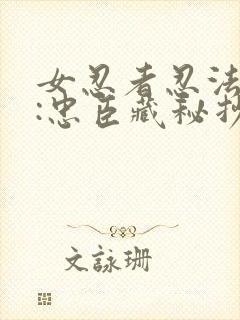 女忍者忍法
:忠臣藏秘抄
文詠珊